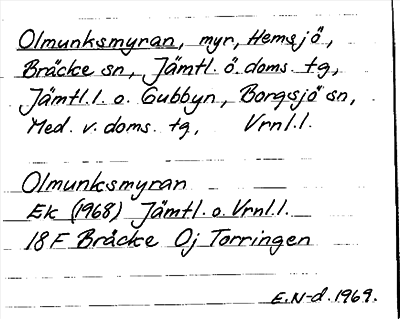 Olmunksmyran, myr, Hemsjö,
Bräcke sn, Jämtl. ö. doms. tg,
Jämtl.l. o. Gubbyn, Borgsjö sn,
Med. v. doms. tg, Vrnl.l.
Olmunksmyran
Ek (1968) Jämtl. o. Vrnl.l.
18 F Bräcke Oj Torringen
E.N-d. 1969.